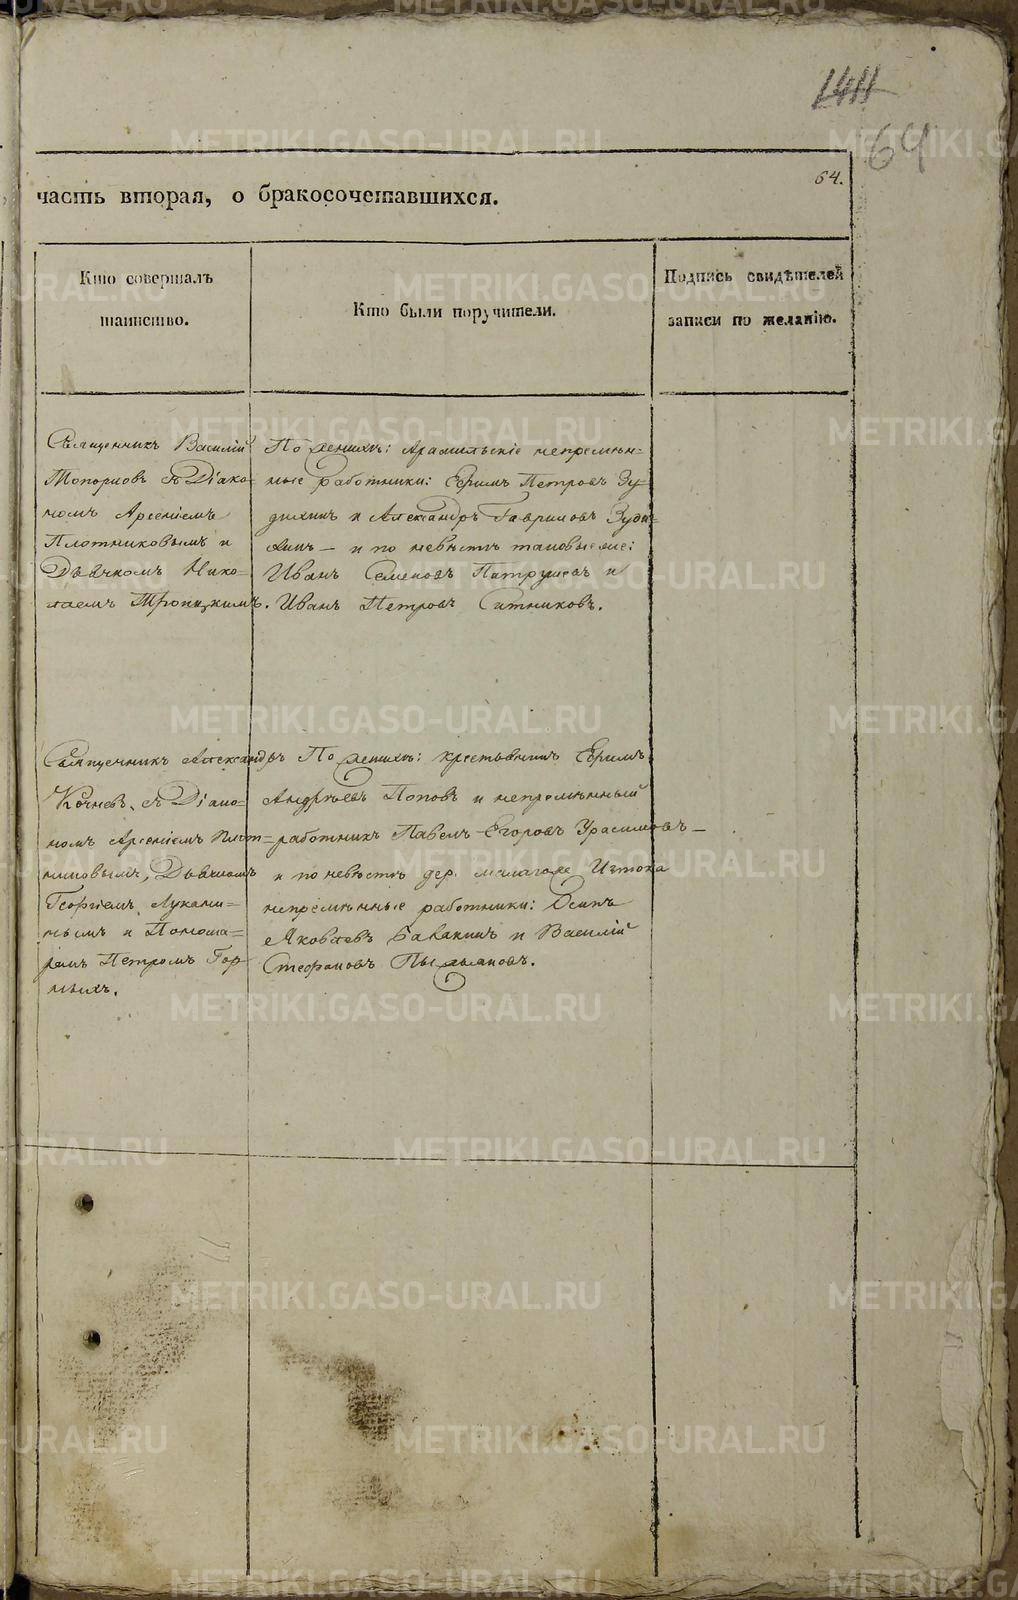 64
64.
часть вторая, о бракосочетавшихся.
Кто совершалъ
таинство.
Кто были поручители.
Подпись свидѣтелей
записи по желанію.
Священникъ Василій
Топорковъ съ Діако-
номъ Арсеніемъ
Плотниковымъ и
Дьячкомъ Нико-
лаемъ Троицкимъ.
По женихѣ: Арамильскіе непремѣн-
ные работники: Ефимъ Петровъ Зу-
дихинъ и Александръ Гавриловъ Зуди-
хинъ — и по невѣстѣ таковые же:
Иванъ Семеновъ Патрушевъ и
Иванъ Петровъ Ситниковъ.
Священникъ Александръ
Кочневъ, съ Діако-
номъ Арсеніемъ Плот-
никовымъ, Дьячкомъ
Георгіемъ Лукани-
нымъ и Понома-
ремъ Петромъ Гор-
ныхъ.
По женихѣ: крестьянинъ Ефимъ
Андреевъ Поповъ и непремѣнный
работникъ Павелъ Егоровъ —
и по невѣстѣ дер. Истока
непремѣнные работники: Осипъ
Яковлевъ Бабкинъ и Василій
Стефановъ Пыжьяновъ.
METRIKI.GASO-URAL.RU